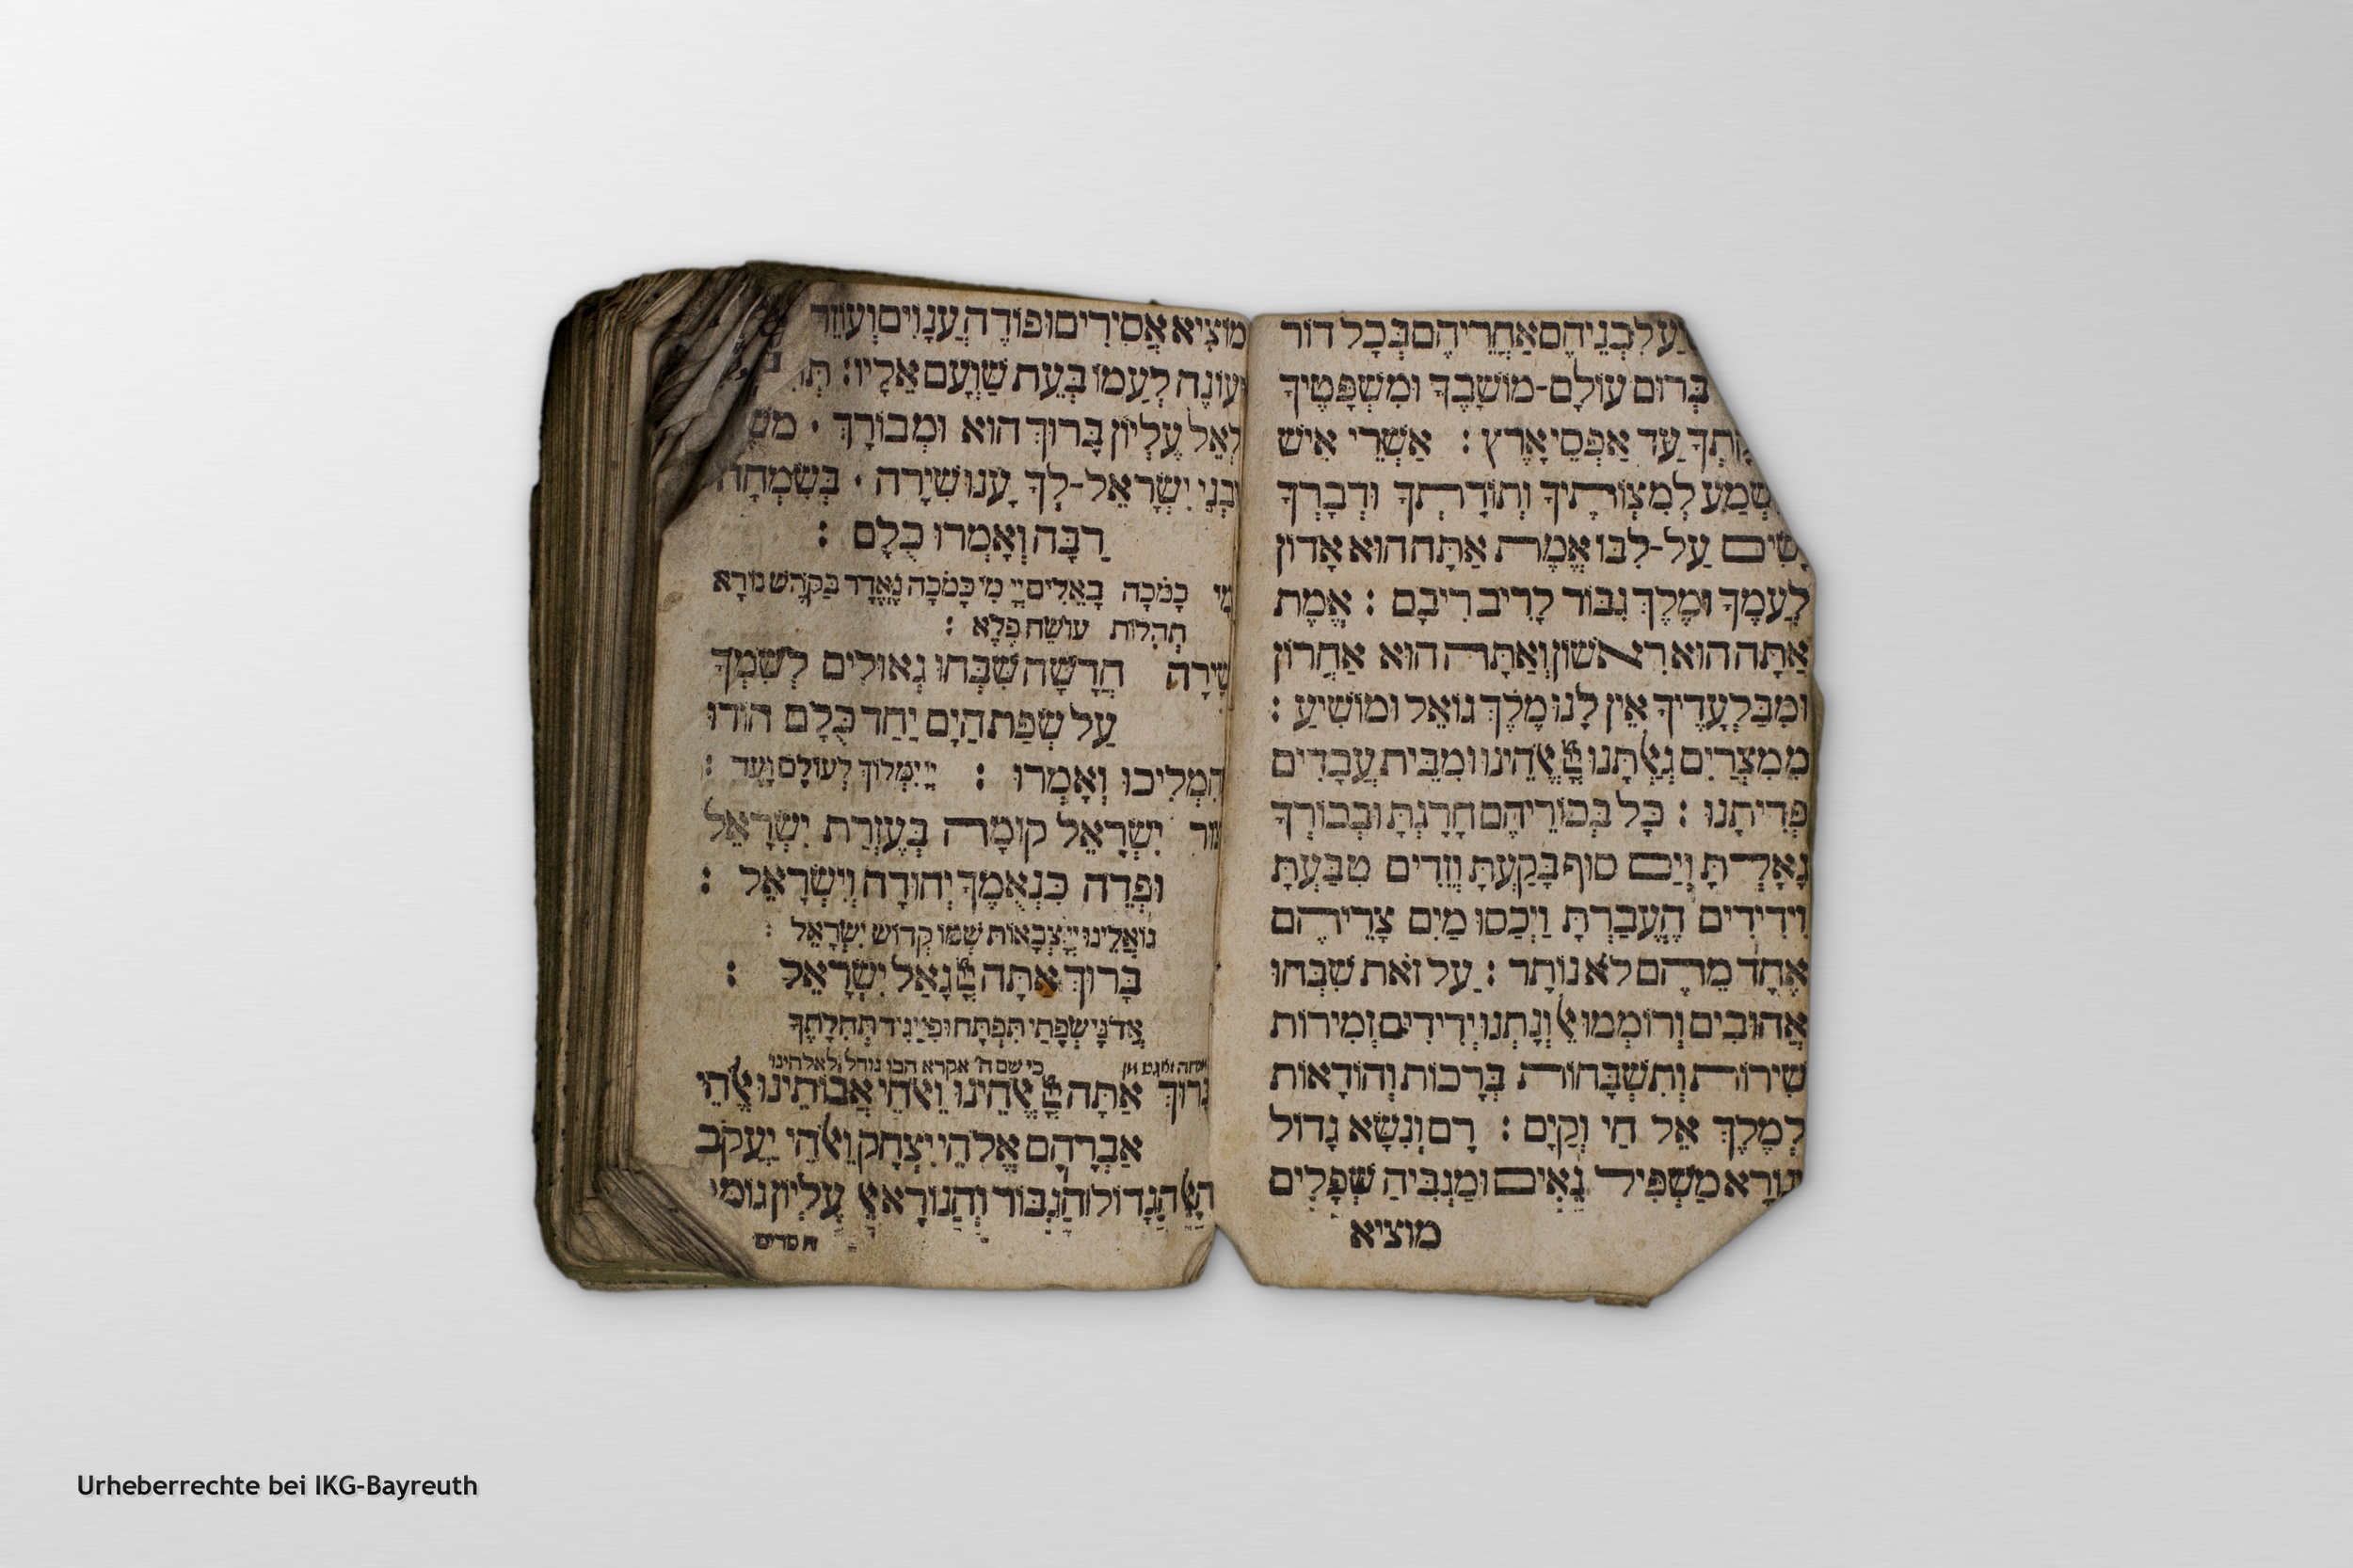 עַל בְּנֵיהֶם אַחֲרֵיהֶם בְּכָל דּוֹר
בְּרוּם עוֹלָם-מוֹשָׁבֶךָ וּמִשְׁפָּטֶיךָ
עַד אַפְסֵי אָרֶץ : אַשְׁרֵי אִישׁ
שֶׁיִּשְׁמַע לְמִצְוֹתֶיךָ וְתוֹרָתְךָ וּדְבָרְךָ
יָשִׂים עַל-לִבּוֹ אֱמֶת אַתָּה הוּא אָדוֹן
לְעַמֶּךָ וּמֶלֶךְ גִּבּוֹר לָרִיב רִיבָם : אֱמֶת
אַתָּה הוּא רִאשׁוֹן וְאַתָּה הוּא אַחֲרוֹן
וּמִבַּלְעָדֶיךָ אֵין לָנוּ מֶלֶךְ גּוֹאֵל וּמוֹשִׁיעַ :
מִמִּצְרַיִם גְּאַלְתָּנוּ יְיָ אֱלֹהֵינוּ וּמִבֵּית עֲבָדִים
פְּדִיתָנוּ : כָּל בְּכוֹרֵיהֶם הָרָגְתָּ וּבְכוֹרְךָ
גָּאָלְתָּ וְיַם סוּף בָּקַעְתָּ וְזֵדִים טִבַּעְתָּ
וִידִידִים הֶעֱבַרְתָּ וַיְכַסּוּ מַיִם צָרֵיהֶם
אֶחָד מֵהֶם לֹא נוֹתָר : עַל זֹאת שִׁבְּחוּ
אֲהוּבִים וְרוֹמְמוּ אֵל וְנָתְנוּ יְדִידִים זְמִירוֹת
שִׁירוֹת וְתִשְׁבָּחוֹת בְּרָכוֹת וְהוֹדָאוֹת
לְמֶלֶךְ אֵל חַי וְקַיָּם : רָם וְנִשָּׂא גָּדוֹל
וְנוֹרָא מַשְׁפִּיל גֵּאִים וּמַגְבִּיהַּ שְׁפָלִים
מוציא
מוֹצִיא אֲסִירִים וּפוֹדֶה עֲנָוִים וְעוֹזֵר
וְעוֹנֶה לְעַמּוֹ בְּעֵת שַׁוְּעָם אֵלָיו:
לְאֵל עֶלְיוֹן בָּרוּךְ הוּא וּמְבוֹרָךְ ·
וּבְנֵי יִשְׂרָאֵל-לְךָ עָנוּ שִׁירָה · בְּשִׂמְחָה
רַבָּה וְאָמְרוּ כֻלָּם :
מִי כָמֹכָה בָּאֵלִים יְיָ מִי כָּמֹכָה נֶאְדָּר בַּקֹּדֶשׁ נוֹרָא
תְהִלּוֹת עוֹשֵׂה פֶלֶא :
שִׁירָה חֲדָשָׁה שִׁבְּחוּ גְאוּלִים לְשִׁמְךָ
עַל שְׂפַת הַיָּם יַחַד כֻּלָּם הוֹדוּ
הִמְלִיכוּ וְאָמְרוּ : יְיָ יִמְלוֹךְ לְעוֹלָם וָעֶד :
צוּר יִשְׂרָאֵל קוּמָה בְּעֶזְרַת יִשְׂרָאֵל
וּפְדֵה כִּנְאֻמֶךָ יְהוּדָה וְיִשְׂרָאֵל :
גּוֹאֲלֵינוּ יְיָ צְבָאוֹת שְׁמוֹ קְדוֹשׁ יִשְׂרָאֵל :
בָּרוּךְ אַתָּה יְיָ גָּאַל יִשְׂרָאֵל :
אֲדֹנָי שְׂפָתַי תִּפְתָּח וּפִי יַגִּיד תְּהִלָּתֶךָ
כי שם ה' אקרא הבו גודל לאלהינו
בָּרוּךְ אַתָּה יְיָ אֱלֹהֵינוּ וֵאלֹהֵי אֲבוֹתֵינוּ אֱלֹהֵי
אַבְרָהָם אֱלֹהֵי יִצְחָק וֵאלֹהֵי יַעֲקֹב
הָאֵל הַגָּדוֹל הַגִּבּוֹר וְהַנּוֹרָא אֵל עֶלְיוֹן גּוֹמֵל
חסדים
Urheberrechte bei IKG-Bayreuth